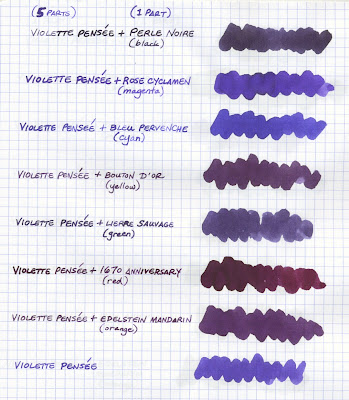 (5 PARTS) (1 PART)
VIOLETTE PENSÉE + PERLE NOIRE
(black)
VIOLETTE PENSÉE + ROSE CYCLAMEN
(magenta)
VIOLETTE PENSÉE + BLEU PERVENCHE
(cyan)
VIOLETTE PENSÉE + BOUTON D'OR
(yellow)
VIOLETTE PENSÉE + LIERRE SAUVAGE
(green)
VIOLETTE PENSÉE + 1670 ANNIVERSARY
(red)
VIOLETTE PENSÉE + EDELSTEIN MANDARIN
(orange)
VIOLETTE PENSÉE